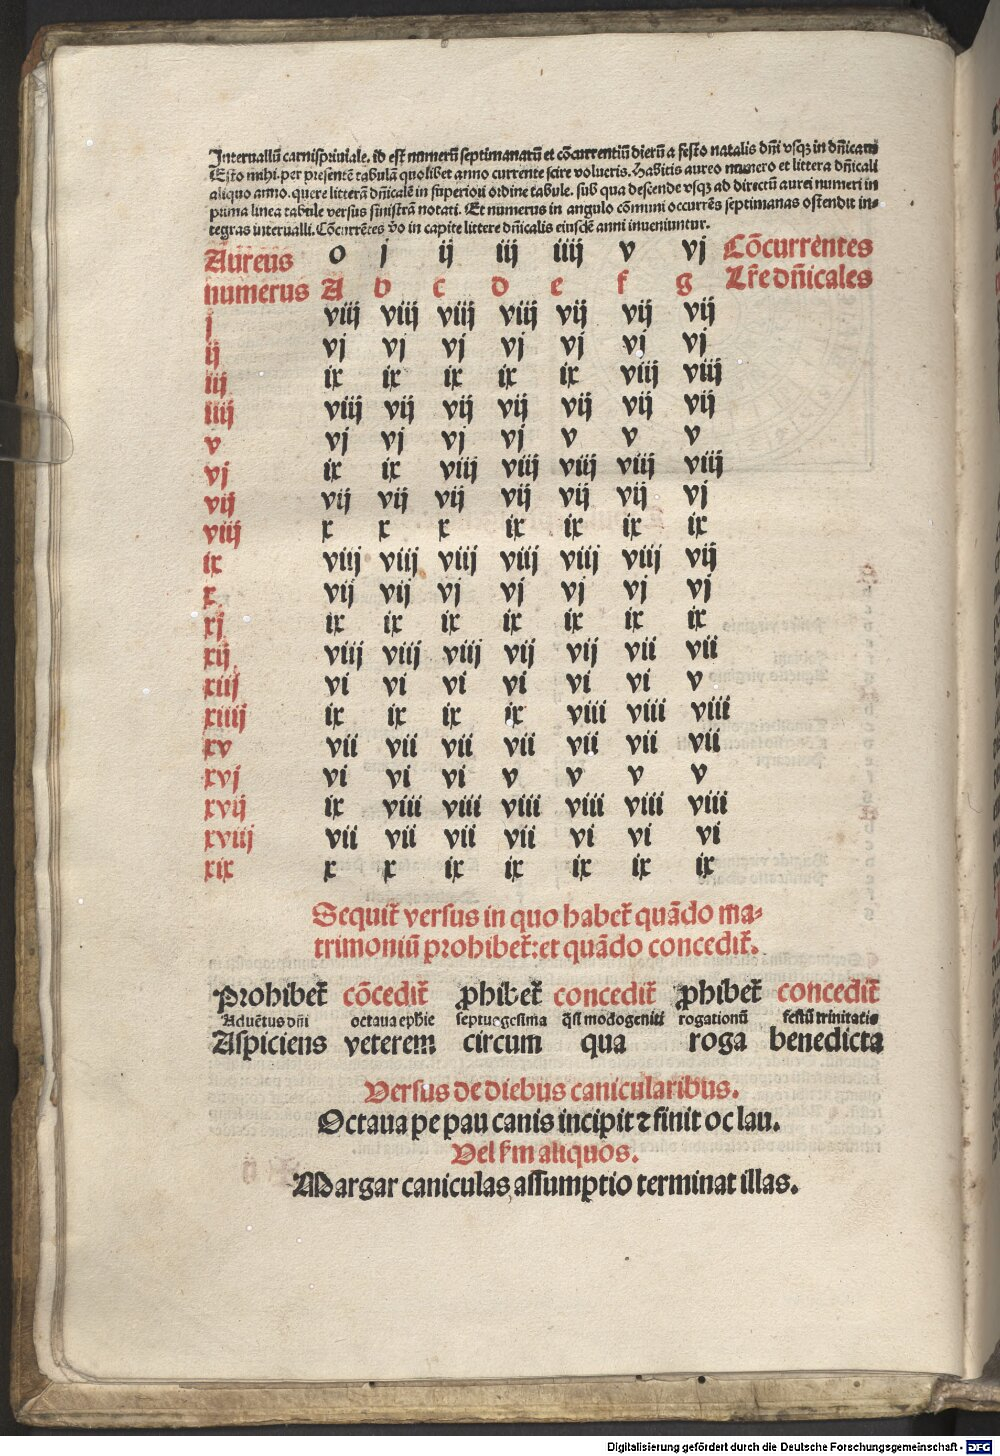 Interuallū carnispriuiale. id est numerū septimanarū et cōcurrentiū dierū a festo natalis dn̄i vsqꝫ in dn̄icam
Esto mihi. per presentē tabulā quolibet anno currente scire volueris. Habitis aureo numero et littera dn̄icali
aliquo anno. quere litterā dn̄icalē in superiori ordine tabule. sub qua descende vsqꝫ ad directū aurei numeri in
prima linea tabule versus sinistrā notati. Et numerus in angulo cōmuni occurrēs septimanas ostendit in-
tegras interualli. Cōcurrētes v̄o in capite littere dn̄icalis eiusdē anni inueniuntur.
Aureus o j ij iij iiij v vj Cōcurrentes
numerus A b c d e f g Lr̄e dn̄icales
j viij viij viij viij vij vij vij
ij vj vj vj vj vj vi vj
iij ix ix ix ix ix viij viij
iiij viij vij vij vij vij vij vij
v vj vj vj vj v v v
vj ix ix viij viij viij viij viij
vij vij vij vij vij vij vij vj
viij x x x ix ix ix ix
ix viij viij viij viij viij viij vij
x vij vij vj vj vj vj vj
xj ix ix ix ix ix ix ix
xij viij viij viij vij vij vii vii
xiij vi vi vi vi vi vi v
xiiij ix ix ix ix viii viii viii
xv vii vii vii vii vii vii vii
xvj vi vi vi v v v v
xvij ix viii viii viii viii viii viii
xviij vii vii vii vii vi vi vi
xix x x ix ix ix ix ix
Sequit᷑ versus in quo habet᷑ quādo ma-
trimoniū prohibet᷑: et quādo concedit᷑.
Prohibet᷑ cōcedit᷑ ꝓhibet᷑ concedit᷑ ꝓhibet᷑ concedit᷑
Aduētus dn̄i octaua ephie septuagesima q̄si modogeniti rogationū festū trinitatis
Aspiciens veterem circum qua roga benedicta
Versus de diebus canicularibus.
Octaua pe pau canis incipit ⁊ finit oc lau.
Vel ẜm aliquos.
Margar caniculas assumptio terminat illas.
Digitalisierung gefördert durch die Deutsche Forschungsgemeinschaft - DFG